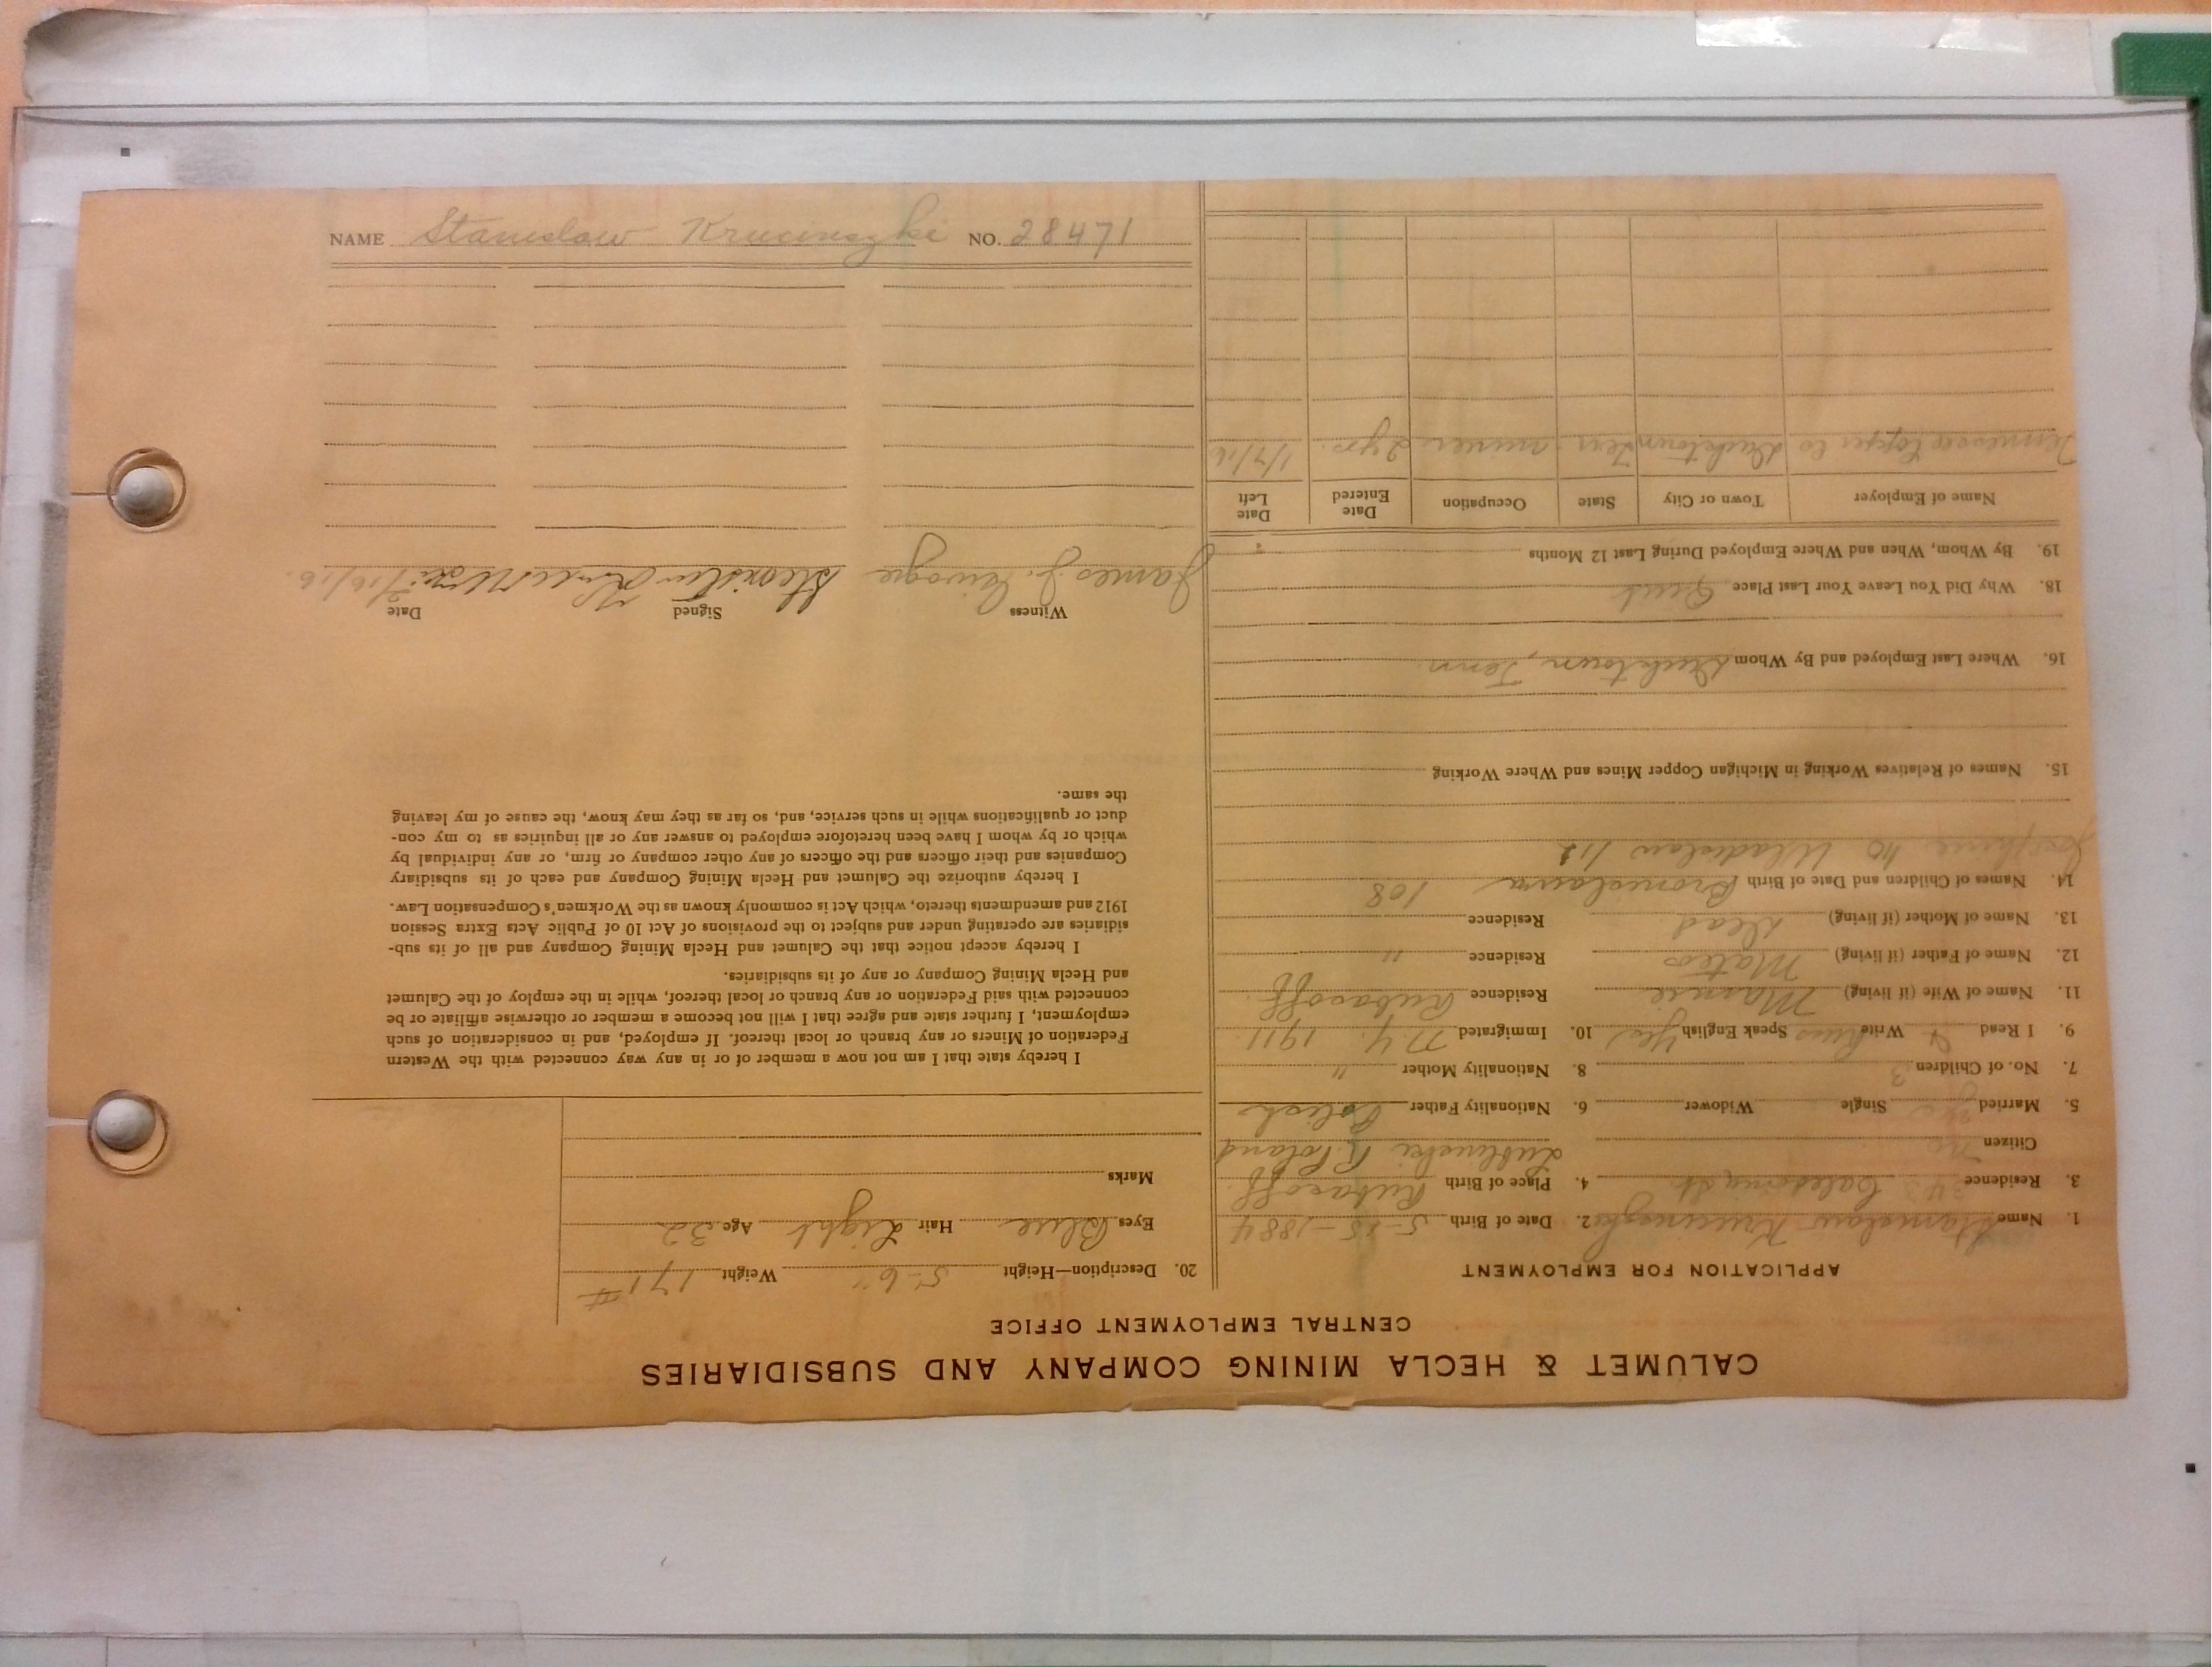 NAME Stanislaw Krucinszki NO. 28471
CALUMET & HECLA MINING COMPANY AND SUBSIDIARIES
CENTRAL EMPLOYMENT OFFICE
APPLICATION FOR EMPLOYMENT
1. Name Stanislaw Krucinszki 2. Date of Birth 5-15-1884
3. Residence Caledonia St 4. Place of Birth
Citizen no Poland
5. Married yes Single Widower 6. Nationality Father Polish
7. No. of Children 3 8. Nationality Mother "
9. I Read & Write Speak English yes 10. Immigrated N.Y. 1911
11. Name of Wife (if living) Mamie Residence
12. Name of Father (if living) Mateo Residence "
13. Name of Mother (if living) Dead Residence
14. Names of Children and Date of Birth Bronislawa 108
Josephine 110 Wladislaw 112
15. Names of Relatives Working in Michigan Copper Mines and Where Working
16. Where Last Employed and By Whom Ducktown, Tenn
18. Why Did You Leave Your Last Place Quit
19. By Whom, When and Where Employed During Last 12 Months
Name of Employer Town or City State Occupation Date Entered Date Left
Tennessee Copper Co Ducktown Tenn. miner 2 yrs. 1/7/16
20. Description—Height 5-6" Weight 171#
Eyes Blue Hair Light Age 32
Marks
I hereby state that I am not now a member of or in any way connected with the Western
Federation of Miners or any branch or local thereof. If employed, and in consideration of such
employment, I further state and agree that I will not become a member or otherwise affiliate or be
connected with said Federation or any branch or local thereof, while in the employ of the Calumet
and Hecla Mining Company or any of its subsidiaries.
I hereby accept notice that the Calumet and Hecla Mining Company and all of its sub-
sidiaries are operating under and subject to the provisions of Act 10 of Public Acts Extra Session
1912 and amendments thereto, which Act is commonly known as the Workmen's Compensation Law.
I hereby authorize the Calumet and Hecla Mining Company and each of its subsidiary
Companies and their officers and the officers of any other company or firm, or any individual by
which or by whom I have been heretofore employed to answer any or all inquiries as to my con-
duct or qualifications while in such service, and, so far as they may know, the cause of my leaving
the same.
Witness Signed Date
James J.